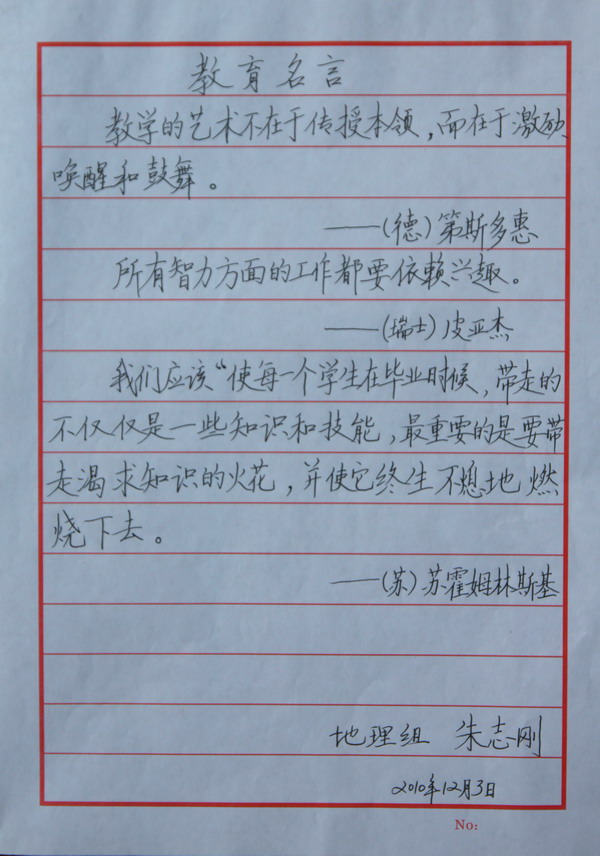 教育名言
教学的艺术不在于传授本领，而在于激励、
唤醒和鼓舞。
——（德）第斯多惠
所有智力方面的工作都要依赖兴趣。
——（瑞士）皮亚杰
我们应该“使每一个学生在毕业时候，带走的
不仅仅是一些知识和技能，最重要的是要带
走渴求知识的火花，并使它终生不熄地燃
烧下去。
——（苏）苏霍姆林斯基
地理组 朱志刚
2010年12月3日
No: